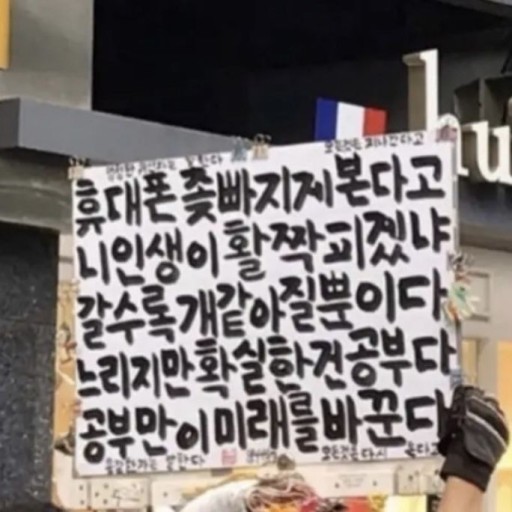 모든것은 지나간다고
hu
휴대폰 좆빠지게 본다고
니인생이 활짝 피겠냐
갈수록 개같아질뿐이다
느리지만 확실한건 공부다
공부만이 미래를 바꾼다